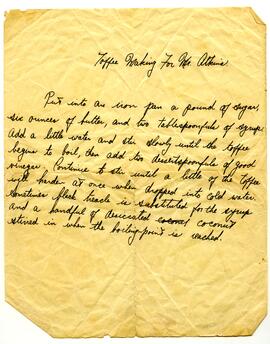 Toffee Making For Mr. Atkins.
Put into an iron pan a pound of sugar,
six ounces of butter, and two tablespoonfuls of syrup.
Add a little water and stir slowly until the toffee
begins to boil, then add two dessertspoonfuls of good
vinegar. Continue to stir until a little of the toffee
will harden at once when dropped into cold water.
Sometimes black treacle is substituted for the syrup
and a handful of desiccated coconut
stirred in when the boiling point is reached.